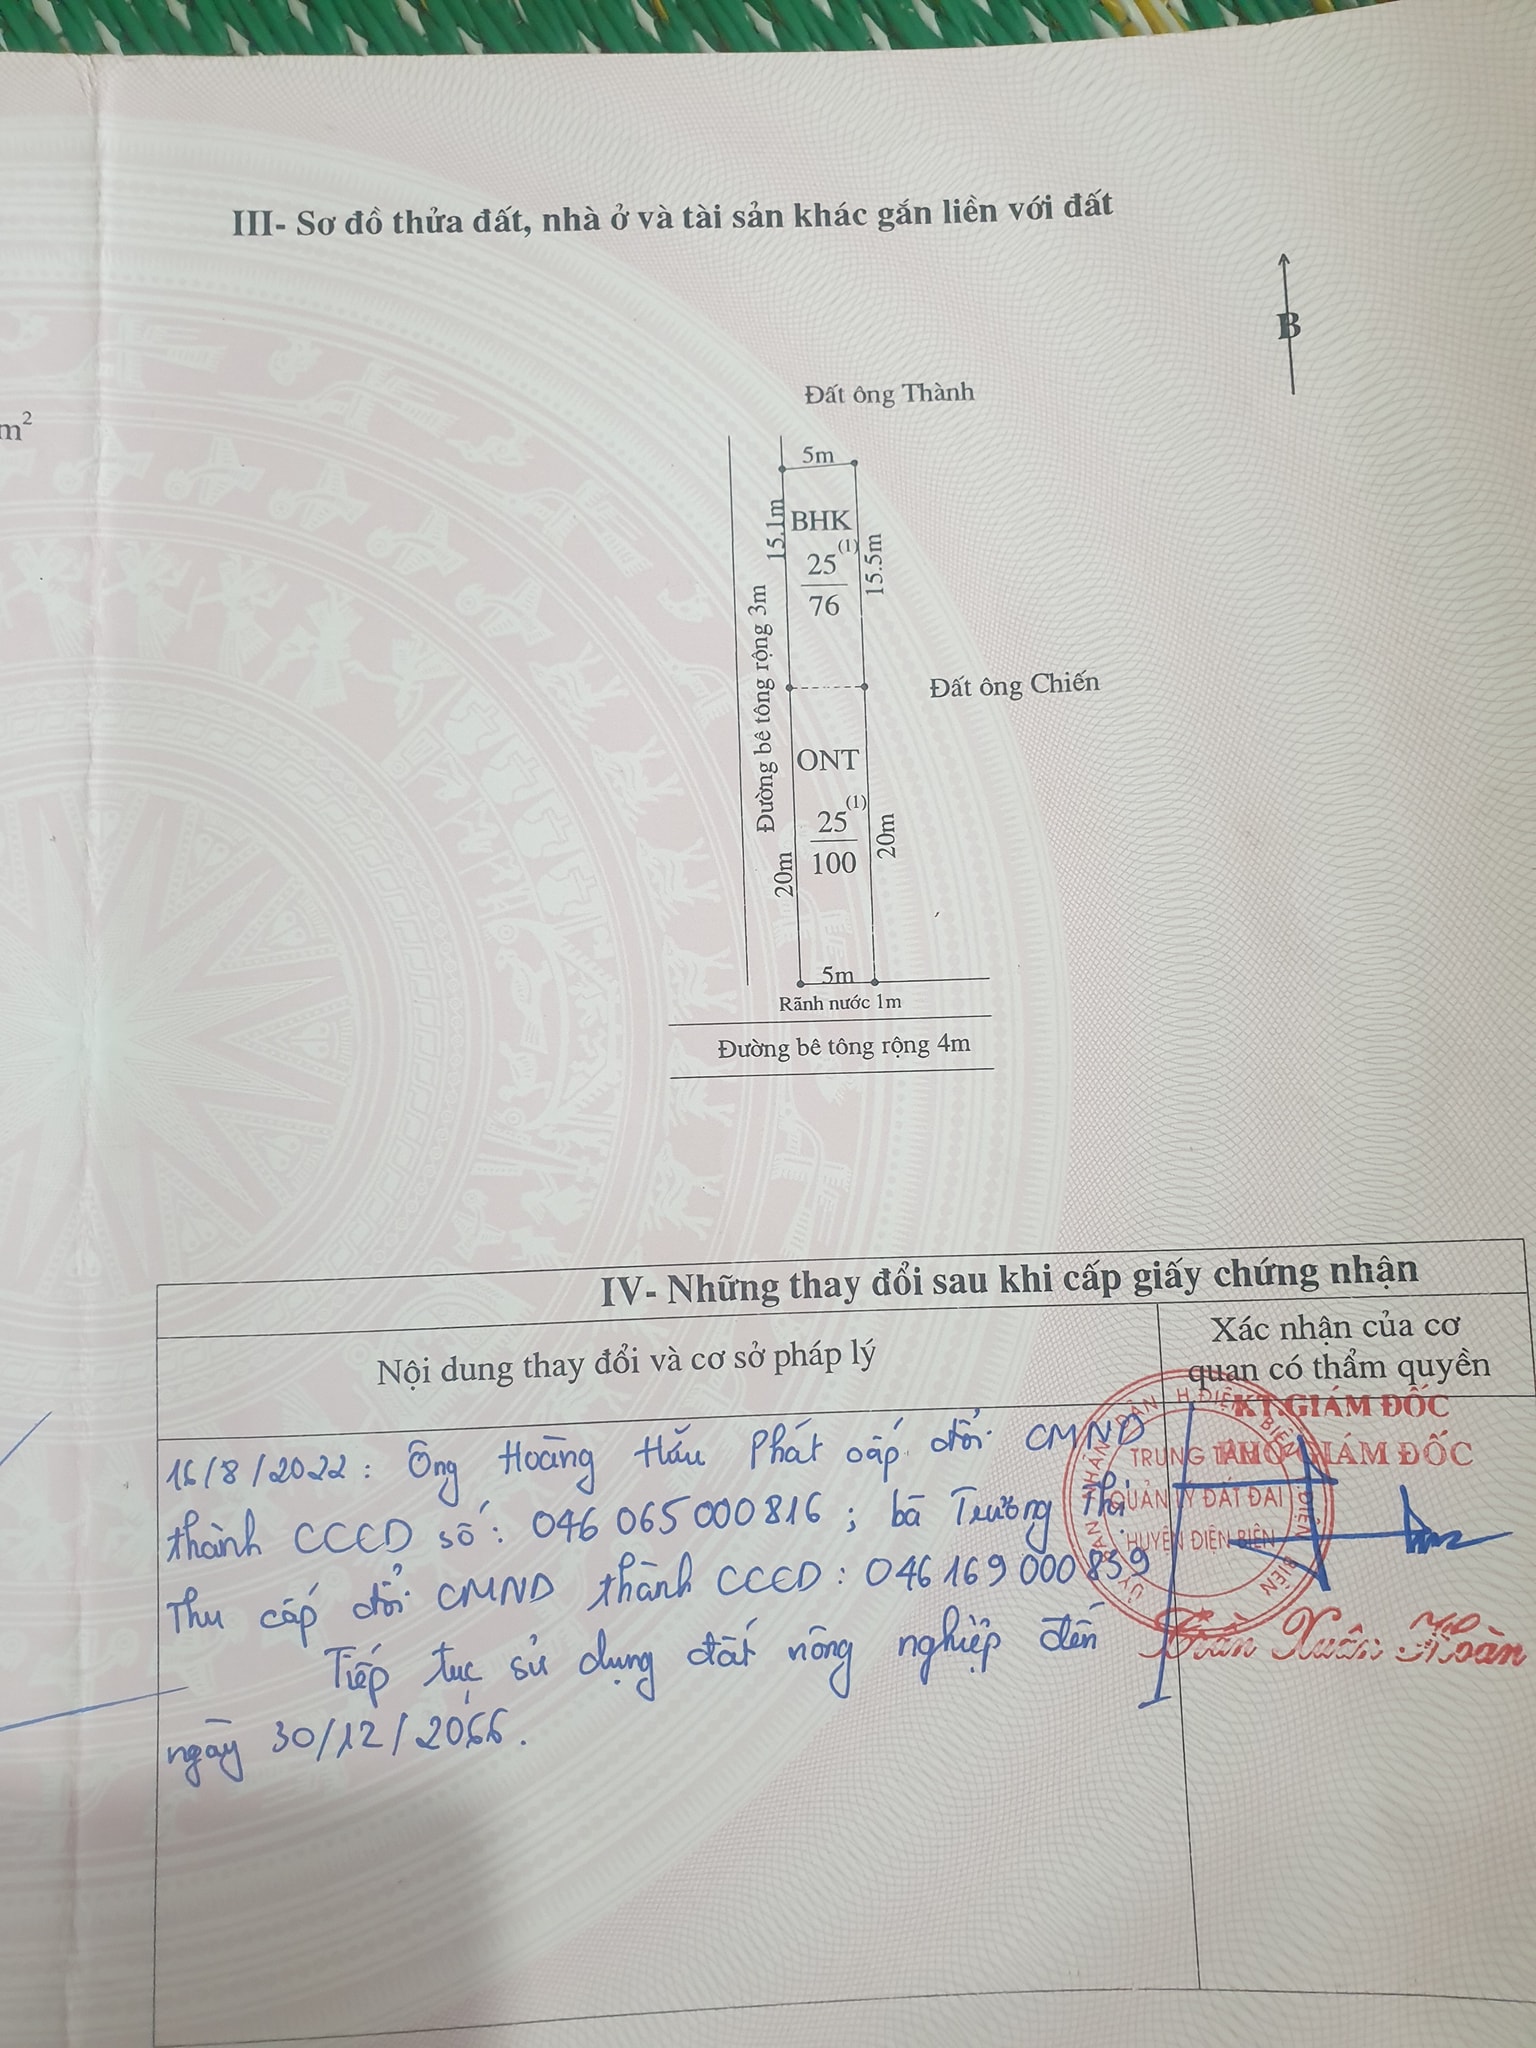 III- Sơ đồ thửa đất, nhà ở và tài sản khác gắn liền với đất
B
Đất ông Thành
m²
5m
15.1m
BHK
25(1)
76
15.5m
Đường bê tông rộng 3m
Đất ông Chiến
ONT
25(1)
100
20m
20m
5m
Rãnh nước 1m
Đường bê tông rộng 4m
IV- Những thay đổi sau khi cấp giấy chứng nhận
Nội dung thay đổi và cơ sở pháp lý
Xác nhận của cơ
quan có thẩm quyền
16/8/2022: Ông Hoàng Hấu Phát cấp đổi CMND
thành CCCD số: 046 065 000816; bà Trương Thị
Thu cấp đổi CMND thành CCCD: 046 169 000 859
Tiếp tục sử dụng đất nông nghiệp đến
ngày 30/12/2066.
KT.GIÁM ĐỐC
PHÓ GIÁM ĐỐC
ỦY BAN NHÂN DÂN H.ĐIỆN BIÊN ĐIỆN BIÊN
TRUNG TÂM
QUẢN LÝ ĐẤT ĐAI
HUYỆN ĐIỆN BIÊN
Trần Xuân Hoàn